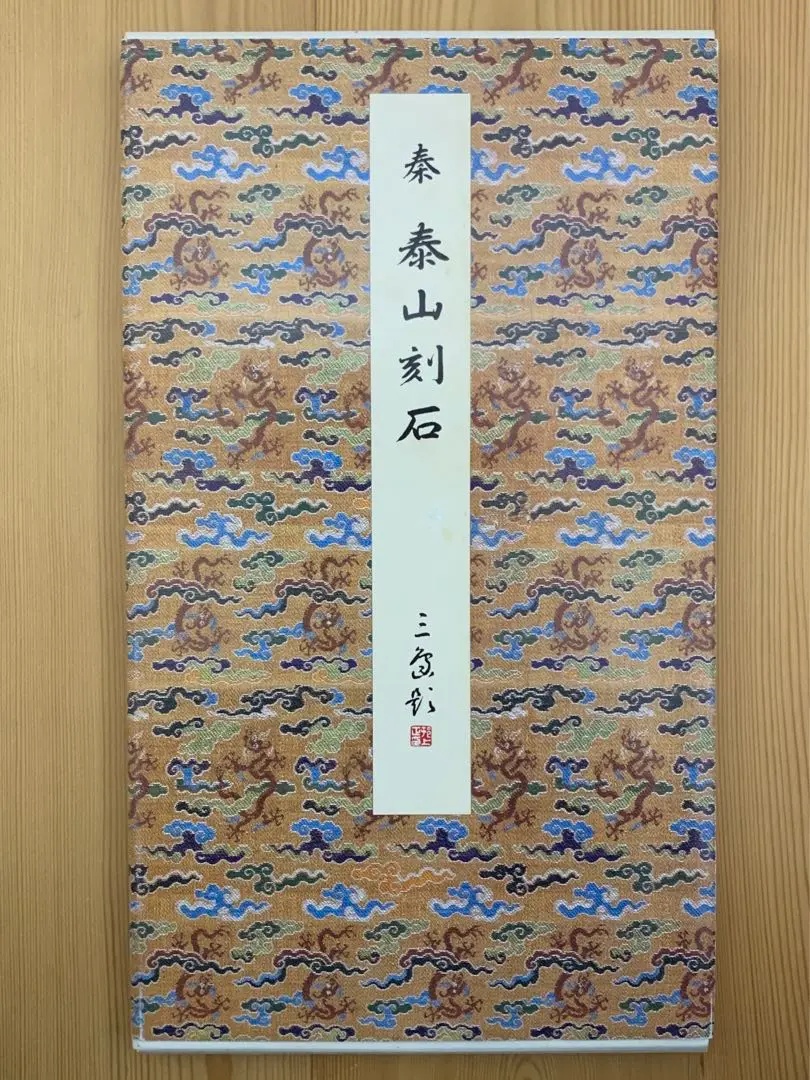 秦 泰山刻石
三魚題